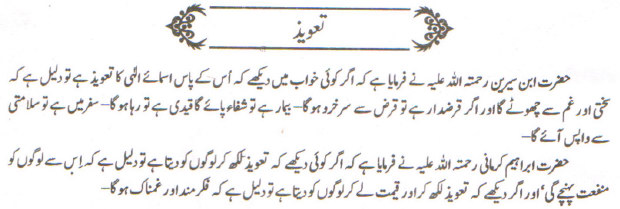 تعویذ
حضرت ابن سیرین رحمتہ اللہ علیہ نے فرمایا ہے کہ اگر کوئی خواب میں دیکھے کہ اُس کے پاس اسمائے الٰہی کا تعویذ ہے تو دلیل ہے کہ
سختی اور غم سے چھوٹے گا اور اگر قرضدار ہے تو قرض سے سرخرو ہوگا۔ بیمار ہے تو شفاء پائے گا قیدی ہے تو رہا ہوگا۔ سفر میں ہے تو سلامتی
سے واپس آئے گا۔
حضرت ابراہیم کرمانی رحمتہ اللہ علیہ نے فرمایا ہے کہ اگر کوئی دیکھے کہ تعویذ لکھ کر لوگوں کو دیتا ہے تو دلیل ہے کہ اِس سے لوگوں کو
منفعت پہنچے گی' اور اگر دیکھے کہ تعویذ لکھ کر اور قیمت لے کر لوگوں کو دیتا ہے تو دلیل ہے کہ فکر مند اور غمناک ہوگا۔